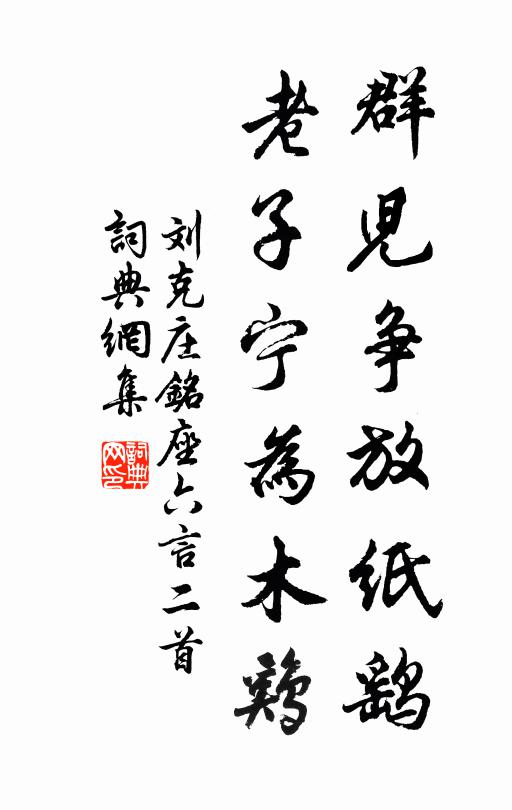 群兒争放紙鷂
老子宁為木鷄
刘克庄銘座六言二首
詞典網集
詞典网印